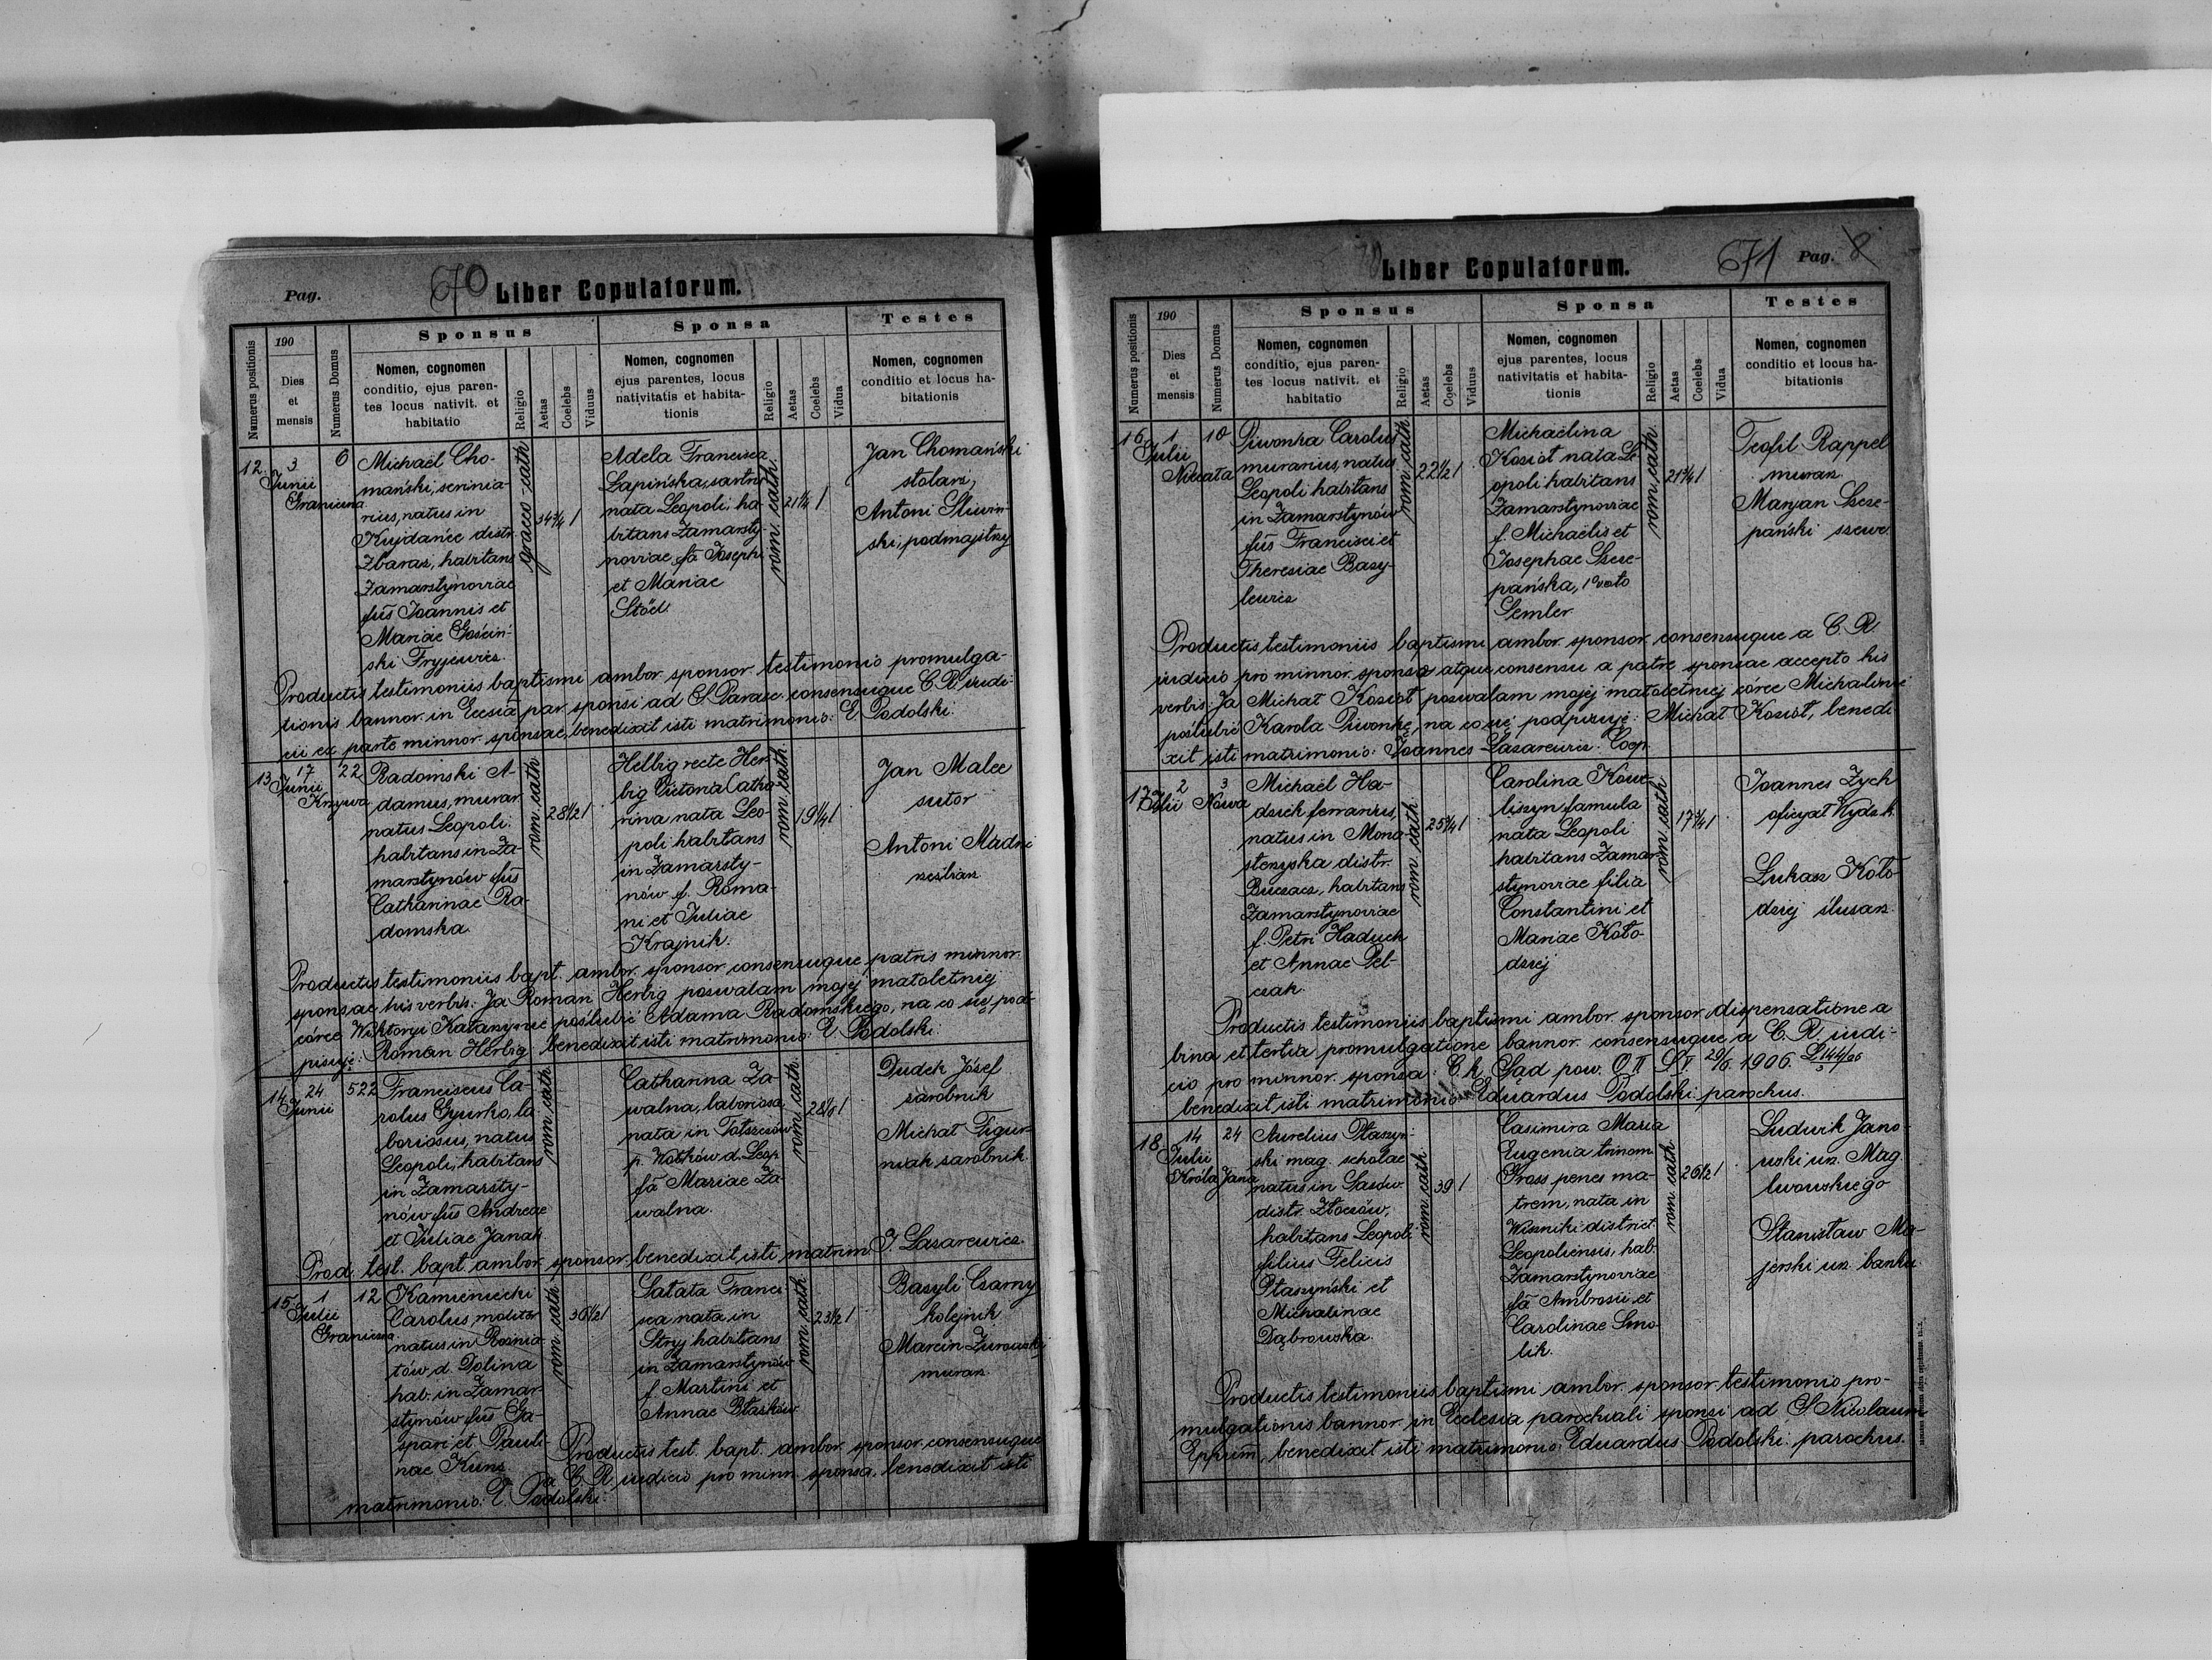 Pag.
670
Liber Copulatorum.
Numerus positionis
190
Dies
et
mensis
Numerus Domus
Sponsus
Nomen, cognomen
conditio, ejus paren-
tes locus nativit. et
habitatio
Religio
Aetas
Coelebs
Viduus
Sponsa
Nomen, cognomen
ejus parentes, locus
nativitatis et habita-
tionis
Religio
Aetas
Coelebs
Vidua
Testes
Nomen, cognomen
conditio et locus ha-
bitationis
12.
3
Junii
Graniczna
6
Michaël Cho-
mański, scrinia-
rius, natus in
Kujdańce distr.
Zbaraz, habitans
Zamarstynoviae
fius Joannis et
Mariae Gościń-
ski Fryjewicz.
graeco-cath
34 3/4
1
Adela Francisca
Łapińska, sartrix
nata Leopoli, ha-
bitans Zamarsty-
noviae fa Josephi
et Mariae
Stöcl.
rom. cath.
21 1/4
1
Jan Chomański
stolarz,
Antoni Śliwiń-
ski, podmajstrzy
Productis testimoniis baptismi ambor. sponsor. testimonio promulga-
tionis bannor. in Eccsia par. sponsi ad S. Parasc. consensuque C. R. iudi-
cii ex parte minnor. sponsae, benedixit isti matrimonio: E. Podolski.
13
17
Junii
Krzywa
22
Radomski A-
damus, murar.
natus Leopoli.
habitans in Za-
marstynów fius
Catharinae Ra-
domska.
rom. cath
28 1/2
1
Helbig recte Her-
big Victoria Catha-
rina nata Leo-
poli habitans
in Zamarsty-
nów f. Roma-
ni et Juliae
Krajnik.
rom. cath
19 1/4
1
Jan Malec
sutor
Antoni Madni
rzeźbiarz
Productis testimoniis bapt. ambor. sponsor. consensuque patris minnor.
sponsae his verbis: Ja Roman Herbig pozwalam mojej małoletniej
córce Wiktoryi Katarzynie poślubić Adama Radomskiego, na co się pod-
pisuję: Roman Herbig benedixit isti matrimonio: E. Podolski.
14
24
Junii
522
Franciscus Ca-
rolus Gyurko, la-
boriosus, natus
Leopoli, habitans
in Zamarsty-
nów fius Andreae
et Juliae Janak
rom. cath
Catharina Za-
walna, laboriosa,
nata in Tołszczów
p. Wołków d. Leop.
fa Mariae Za-
walna.
rom. cath.
1
Dudek Józef
zarobnik
Michał Figur-
niak, zarobnik.
Prod. test. bapt. ambor. sponsor., benedixit isti matrim. J. Lazarewicz.
15
1
Julii
Graniczna
12
Kamieniecki
Carolus, molitor
natus in Rożnia-
tów d. Dolina
hab. in Zamar-
stynów fius Ga-
spari et Pauli-
nae Kunz
rom. cath
36 1/2
1
Sałata Franci-
sca nata in
Stryj habitans
in Zamarstynów
f. Martini et
Annae Błasków
rom. cath
23 1/2
1
Bazyli Czarny
kolejnik
Marcin Żurowski
murarz
Productis test. bapt. ambor. sponsor. consensuque
a C. R. iudicio pro minn. sponsa. benedixit isti
matrimonio: E. Podolski.
Liber Copulatorum.
671
Pag. 8
Numerus positionis
190
Dies
et
mensis
Numerus Domus
Sponsus
Nomen, cognomen
conditio, ejus paren-
tes locus nativit. et
habitatio
Religio
Aetas
Coelebs
Viduus
Sponsa
Nomen, cognomen
ejus parentes, locus
nativitatis et habita-
tionis
Religio
Aetas
Coelebs
Vidua
Testes
Nomen, cognomen
conditio et locus ha-
bitationis
16
1
Julii
10
Piwonka Carolus
murarius, natus
Leopoli habitans
in Zamarstynów
fius Francisci et
Theresiae Bazy-
lewicz
rom. cath.
22 1/2
1
Michaëlina
Kozioł nata Le-
opoli habitans
Zamarstynoviae
f. Michaëlis et
Josephae Szcze-
pańska, 1o voto
Semler.
rom. cath.
21 3/4
1
Teofil Rappel
murarz
Maryan Szcze-
pański szewc
Productis testimoniis baptismi ambor. sponsor. consensuque a C. R.
iudicio pro minnor. sponsa atque consensu a patre sponsae accepto his
verbis: Ja Michał Kozioł pozwalam mojej małoletniej córce Michalinie
poślubić Karola Piwonkę, na co się podpisuję: Michał Kozioł, benedi-
xit isti matrimonio: Joannes Lazarewicz. Coop.
17
2
Julii
3
Nowa
Michaël Ha-
dzich ferrarius,
natus in Mona-
sterzyska distr.
Buczacz, habitans
Zamarstynoviae
f. Petri Haduch
et Annae Pel-
czak.
rom. cath.
25 3/4
1
Carolina Kowa-
liszyn famula
nata Leopoli
habitans Zamar-
stynoviae filia
Constantini et
Mariae Koło-
dziej
rom. cath
17 3/4
1
Joannes Zych
oficyał Wydz. k.
Łukasz Koło-
dziej ślusarz.
Productis testimoniis baptismi ambor. sponsor. dispensatione a
bina et tertia promulgatione bannor. consensuque a C. R. iudi-
cio pro minnor. sponsa: C. k. Sąd pow. O II S I 29/6 1906.
benedixit isti matrimonio Eduardus Podolski parochus.
18
14
Julii
Króla Jana
24
Aurelius Ptaszyń-
ski mag. scholae
natus in Sasów
distr. Złoczów,
habitans Leopoli.
filius Felicis
Ptaszyński et
Michalinae
Dąbrowska.
rom. cath.
39
1
Casimira Maria
Eugenia trinom.
Gross penes ma-
trem, nata in
Winniki district.
Leopoliensis, hab.
Zamarstynoviae
fa Ambrosii et
Carolinae Smo-
lik.
rom. cath
26 1/2
1
Ludwik Jano-
wski urz. Mag.
lwowskiego
Stanisław Ma-
jerski urz. banku
Productis testimoniis baptismi ambor. sponsor. testimonio pro-
mulgationis bannor. in Ecclesia parochiali sponsi ad S. Nicolaum
Eppum, benedixit isti matrimonio: Eduardus Podolski parochus.